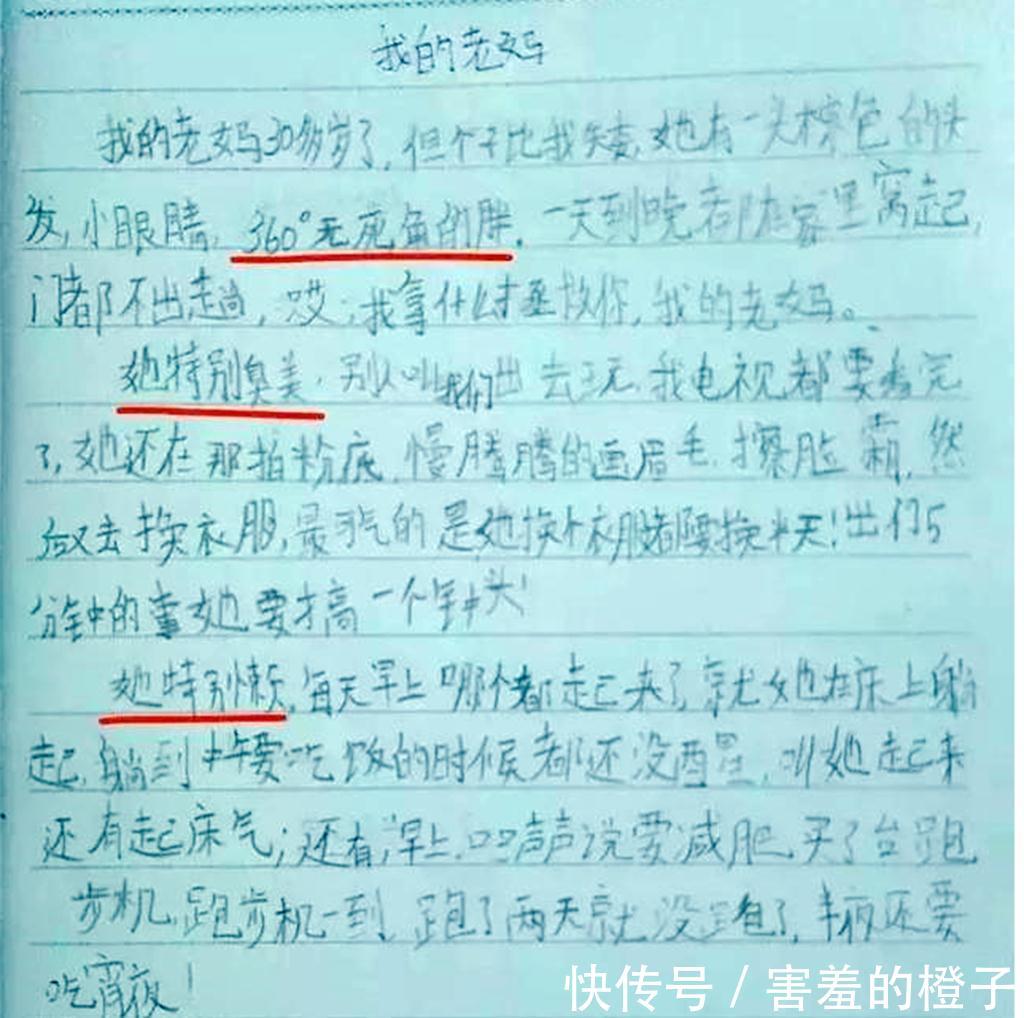 我的老妈
我的老妈30多岁了，但个子比我矮，她有一头棕色的头
发，小眼睛，360°无死角的胖，一天到晚都在家里窝起，
门都不出趟，哎，我拿什么拯救你，我的老妈。
她特别臭美，别人叫我们出去玩，我电视都要看完
了，她还在那拍粉底，慢腾腾的画眉毛，擦脸霜，然
后又去换衣服，最气的是她换个衣服都要换半天！出门5
分钟的事她要搞一个钟头！
她特别懒，每天早上哪个都起来了，就她在床上躺
起，躺到中午要吃饭的时候都还没酉星，叫她起来
还有起床气；还有，早上口口声声说要减肥，买了台跑
步机，跑步机一到，跑了两天就没跑了，半夜还要
吃宵夜！
快传号/害羞的橙子